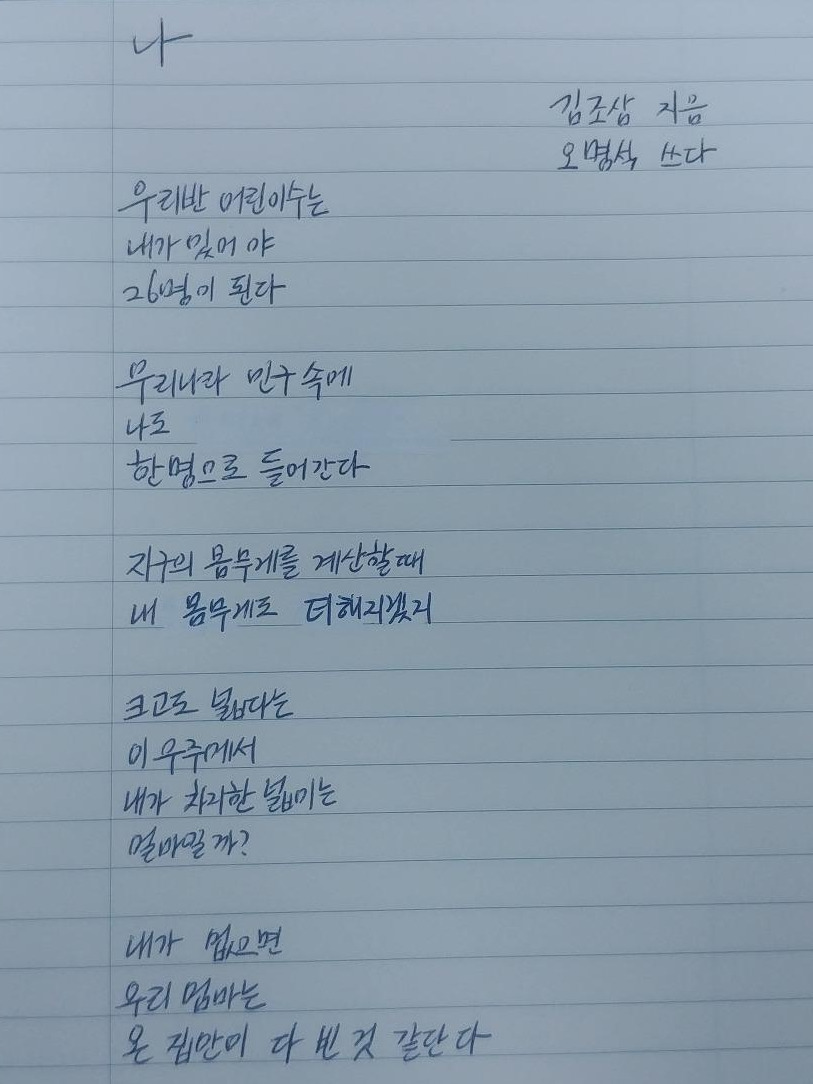 나
김조삼 지음
오명석 쓰다
우리반 어린이수는
내가 있어야
26명이 된다
우리나라 인구 속에
나도
한명으로 들어간다
지구의 몸무게를 계산할때
내 몸무게도 더해지겠지
크고도 넓다는
이 우주에서
내가 차지한 넓이는
얼마일까?
내가 없으면
우리 엄마는
온 집안이 다 빈 것 같단다